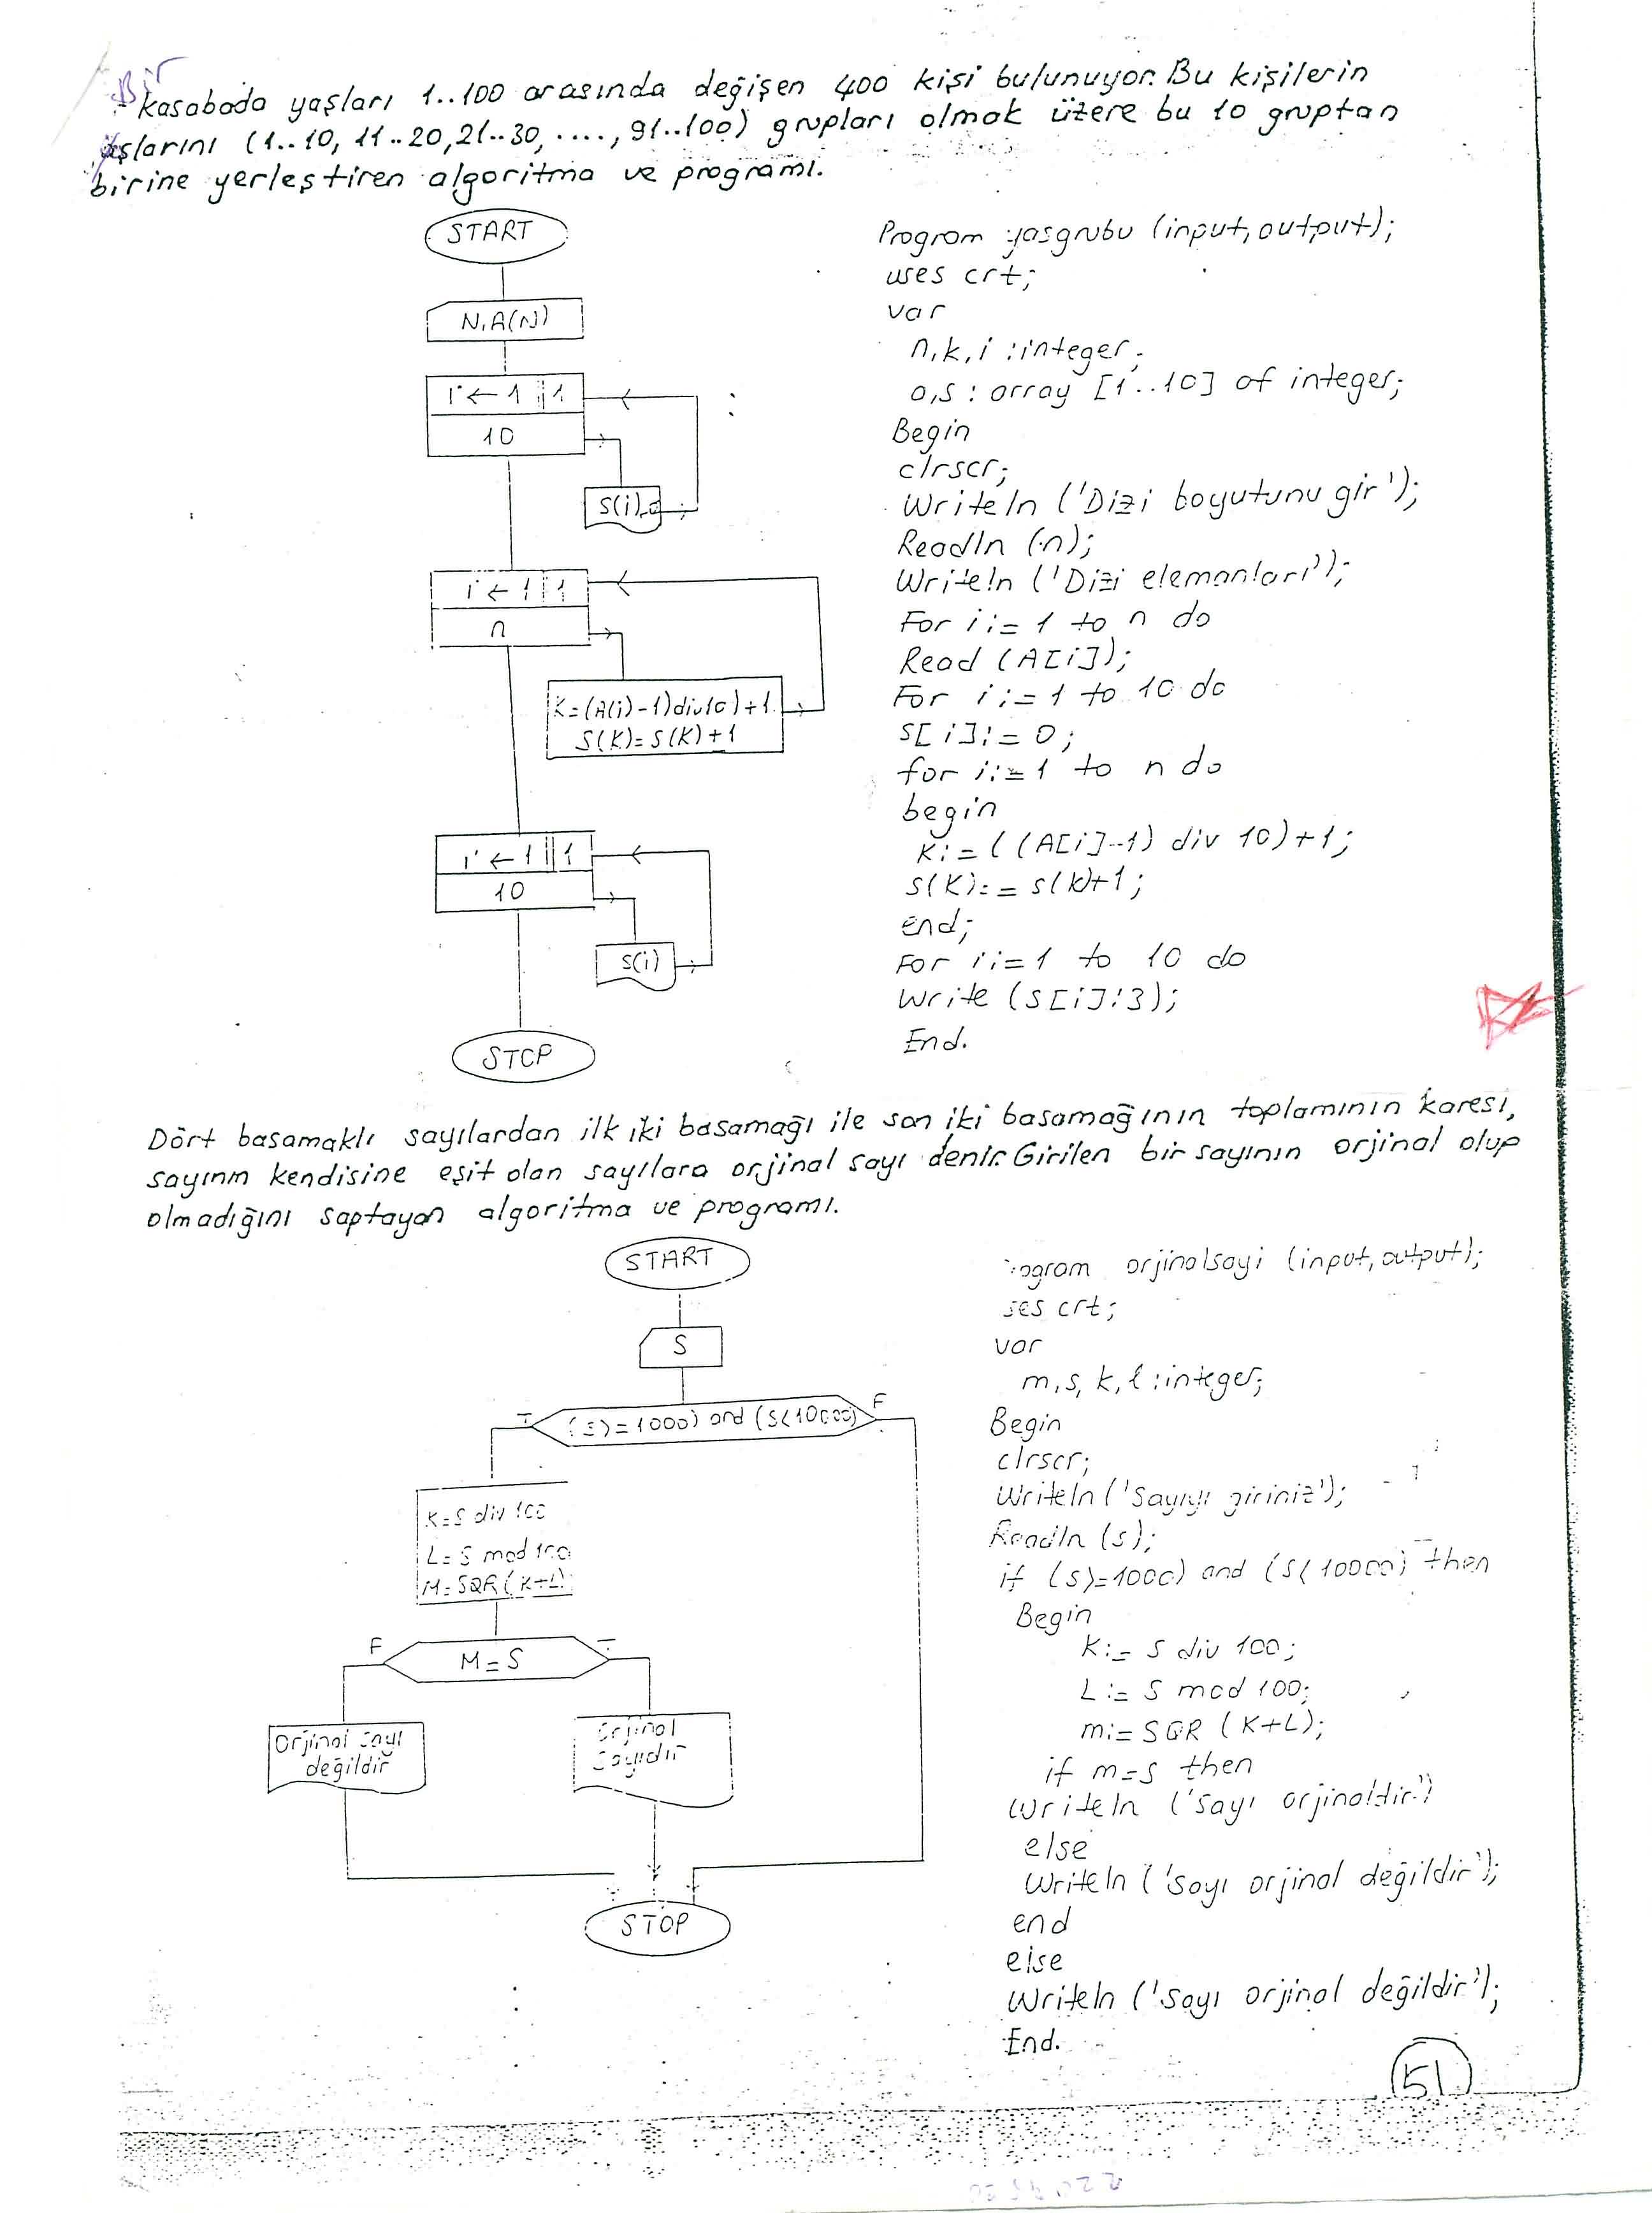 Bir
kasabada yaşları 1..100 arasında değişen 400 kişi bulunuyor. Bu kişilerin
yaşlarını (1..10, 11..20, 21..30, ...., 91..100) grupları olmak üzere bu 10 gruptan
birine yerleştiren algoritma ve programı.
START
N,A(N)
i ← 1 || 1
10
S(i)
i ← 1 || 1
n
K=(A(i)-1)div10)+1
S(K)=S(K)+1
i ← 1 || 1
10
S(i)
STOP
Program yasgrubu (input,output);
uses crt;
var
n,k,i :integer;
a,s : array [1..10] of integer;
Begin
clrscr;
Writeln ('Dizi boyutunu gir');
Readln (n);
Writeln ('Dizi elemanları');
For i:= 1 to n do
Read (A[i]);
For i:= 1 to 10 do
S[i]:= 0;
for i:= 1 to n do
begin
K:= ((A[i]-1) div 10)+1;
S(K):= s(k)+1;
end;
For i:=1 to 10 do
Write (S[i]:3);
End.
Dört basamaklı sayılardan ilk iki basamağı ile son iki basamağının toplamının karesi,
sayının kendisine eşit olan sayılara orjinal sayı denir. Girilen bir sayının orjinal olup
olmadığını saptayan algoritma ve programı.
START
S
T (S>=1000) and (S<10000) F
K=S div 100
L=S mod 100
M=SQR(K+L)
F M=S T
Orjinal sayı
değildir
Orjinal
sayıdır
STOP
ogram orjinalsayi (input,output);
ses crt;
var
m,s,k,l :integer;
Begin
clrscr;
Writeln ('Sayıyı giriniz');
Readln (s);
if (S>=1000) and (S<10000) then
Begin
K:= S div 100;
L:= S mod 100;
m:= SQR (K+L);
if m=s then
Writeln ('Sayı orjinaldir')
else
Writeln ('Sayı orjinal değildir');
end
else
Writeln ('Sayı orjinal değildir');
End.
51